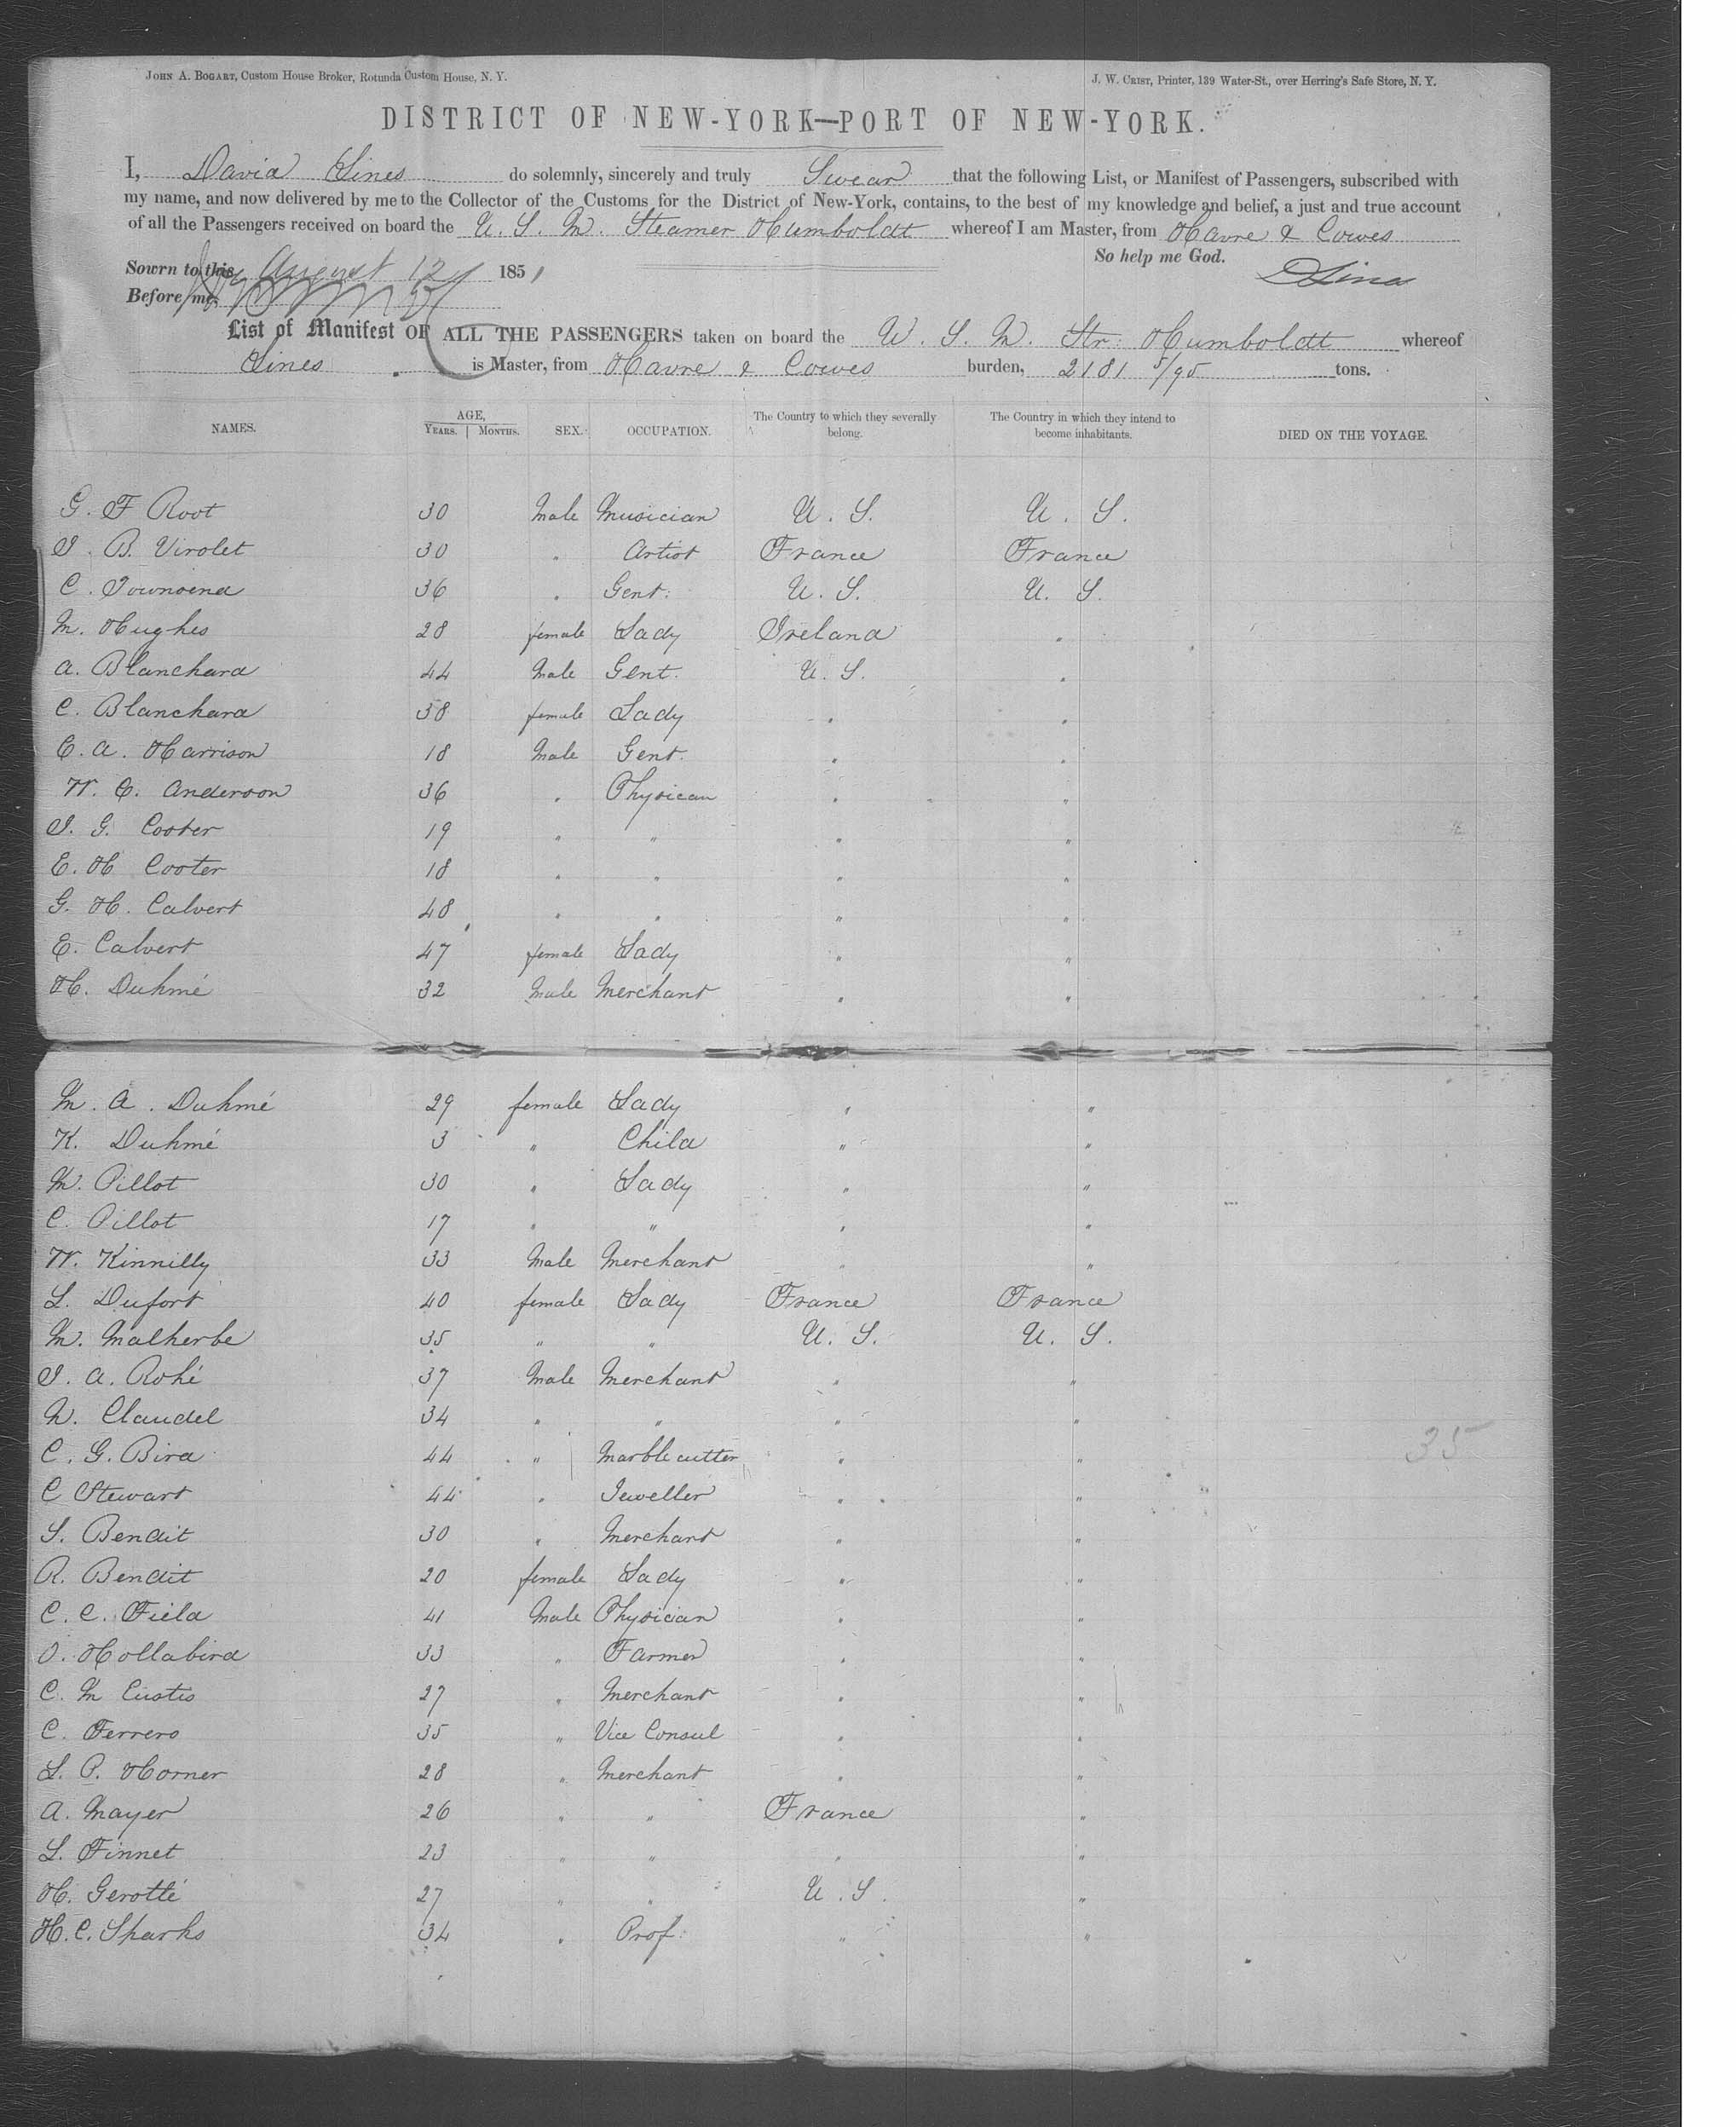 John A. Bogart, Custom House Broker, Rotunda Custom House, N. Y. J. W. Crist, Printer, 139 Water-St., over Herring's Safe Store, N. Y.
DISTRICT OF NEW-YORK—PORT OF NEW-YORK.
I, David Lines do solemnly, sincerely and truly Swear that the following List, or Manifest of Passengers, subscribed with
my name, and now delivered by me to the Collector of the Customs for the District of New-York, contains, to the best of my knowledge and belief, a just and true account
of all the Passengers received on board the U. S. M. Steamer Humboldt whereof I am Master, from Havre & Cowes
So help me God.
Sowrn to this August 12 1851 DLines
Before me,
List of Manifest OF ALL THE PASSENGERS taken on board the U. S. M. Str. Humboldt whereof
Lines is Master, from Havre & Cowes burden, 2181 5/95 tons.
NAMES. AGE, YEARS. MONTHS. SEX. OCCUPATION. The Country to which they severally belong. The Country in which they intend to become inhabitants. DIED ON THE VOYAGE.
G. F Root 30 Male Musician U. S. U. S.
J. B. Virolet 30 " Artist France France
C. Townsend 36 " Gent. U. S. U. S.
M. Hughes 28 female Lady Ireland "
A. Blanchard 44 Male Gent. U. S. "
C. Blanchard 38 female Lady " "
C. A. Harrison 18 Male Gent. " "
W. C. Anderson 36 " Physican " "
J. G. Coster 19 " " " "
E. H Coster 18 " " " "
G. H. Calvert 48 " " " "
E. Calvert 47 female Lady " "
H. Duhmé 32 Male Merchant " "
M. A. Duhmé 29 female Lady " "
K. Duhmé 3 " Child " "
M. Pillot 30 " Lady " "
C. Pillot 17 " " " "
W. Kinnilly 33 Male Merchant " "
L. Dufort 40 female Lady France France
M. Malherbe 35 " " U. S. U. S.
J. A. Rohé 37 Male Merchant " "
N. Claudel 34 " " " "
C. G. Bird 44 " Marble cutter " " 35
C Stewart 44 " Jeweller " "
S. Bendit 30 " Merchant " "
R. Bendit 20 female Lady " "
C. C. Field 41 Male Physician " "
O. Hollabird 33 " Farmer " "
C. M Custis 27 " Merchant " "
C. Ferrero 35 " Vice Consul " "
L. P. Horner 28 " Merchant " "
A. Mayer 26 " " France "
L. Finnet 23 " " " "
H. Gerotté 27 " " U. S. "
H. C. Sparks 34 " Prof. " "